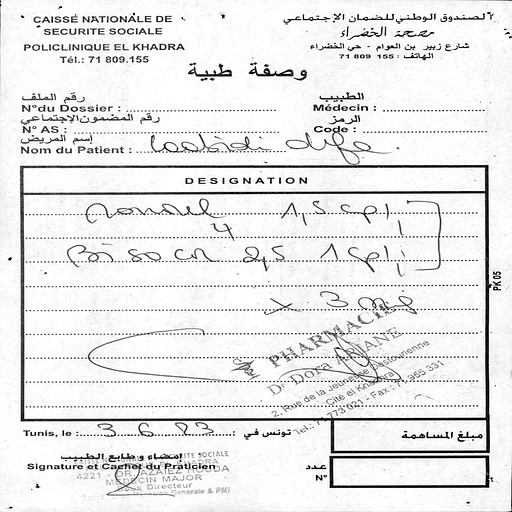 CAISSE NATIONALE DE
SECURITE SOCIALE
POLICLINIQUE EL KHADRA
Tél.: 71 809.155
الصندوق الوطني للضمان الإجتماعي
مصحة الخضراء
شارع زبير بن العوام - حي الخضراء
الهاتف : 155 809 71
وصفة طبية
رقم الملف
N°du Dossier :
رقم المضمون الإجتماعي
N° AS :
الطبيب
Médecin :
الرمز
Code :
إسم المريض
Nom du Patient :
DESIGNATION
1,5 cp/j
2,5 1 cp/j
x 3 mois
PHARMACIE
Dr Dora ARIANE
2, Rue de la Jeunesse Pastourienne
Cité el Khadra
Tel.: 71.773.021 - Fax : 71.955.331
PK 05
Tunis, le : 3 6 23 تونس في :
إمضاء و طابع الطبيب
Signature et Cachet du Praticien
4221 - DR. AZAIEZ HOUDA
MEDECIN MAJOR
Directeur
Generale & PMI
مبلغ المساهمة
عدد
N°